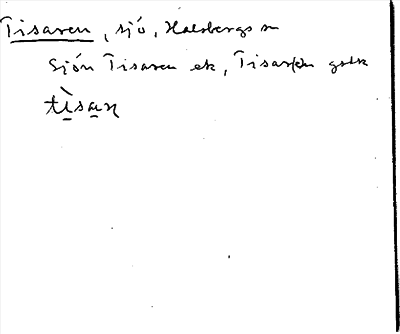 Tisaren, sjö, Halsbergs sn
Sjön Tisaren ek, Tisaren gstk
tìsaɲ